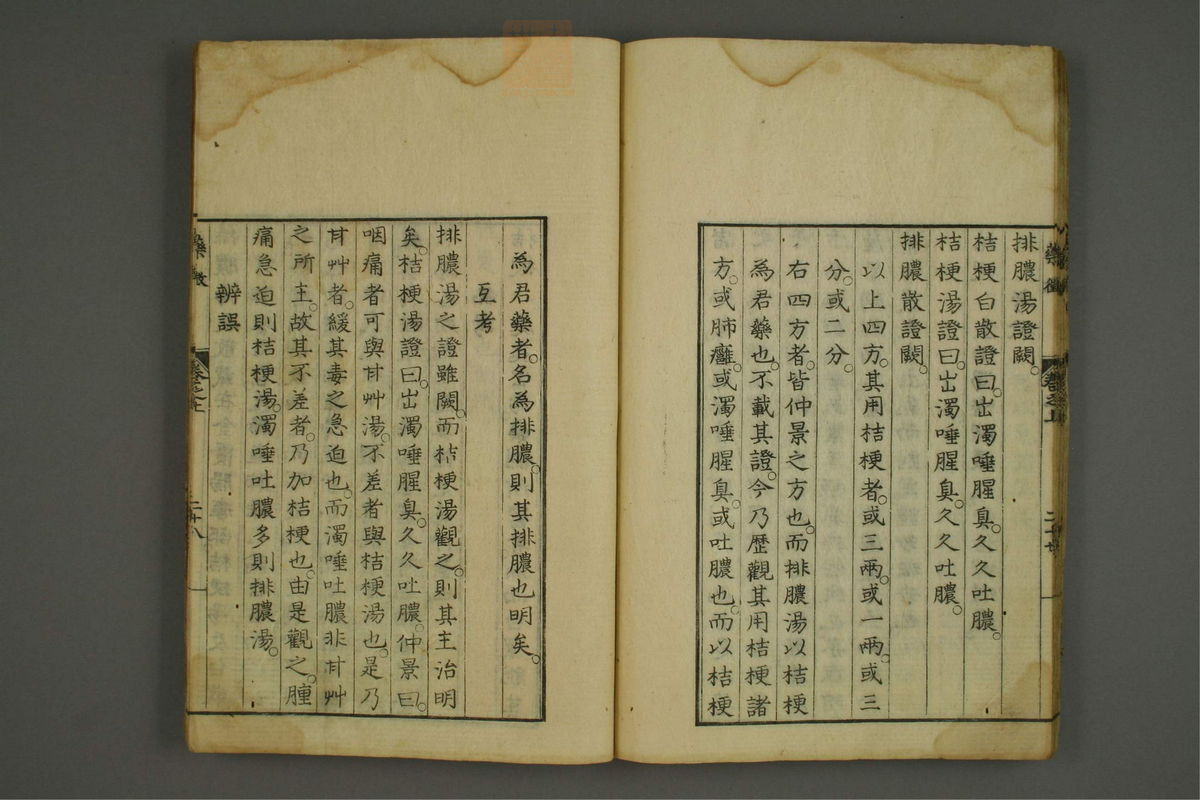 排膿湯證闕。
桔梗白散證曰。出濁唾腥臭。久久吐膿。
桔梗湯證曰。出濁唾腥臭。久久吐膿。
排膿散證闕。
以上四方。其用桔梗者。或三兩。或一兩。或三
分。或二分。
右四方者。皆仲景之方也。而排膿湯以桔梗
為君藥也。不載其證。今乃歷觀其用桔梗諸
方。或肺癰。或濁唾腥臭。或吐膿也。而以桔梗
卷之上
為君藥者。名為排膿。則其排膿也明矣。
互考
排膿湯之證雖闕。而桔梗湯觀之。則其主治明
矣。桔梗湯證曰。出濁唾腥臭。久久吐膿。仲景曰。
咽痛者可與甘艸湯。不差者與桔梗湯也。是乃
甘艸者。緩其毒之急迫也。而濁唾吐膿非甘艸
之所主。故其不差者。乃加桔梗也。由是觀之。腫
痛急迫則桔梗湯。濁唾吐膿多則排膿湯。
辨誤
二十八